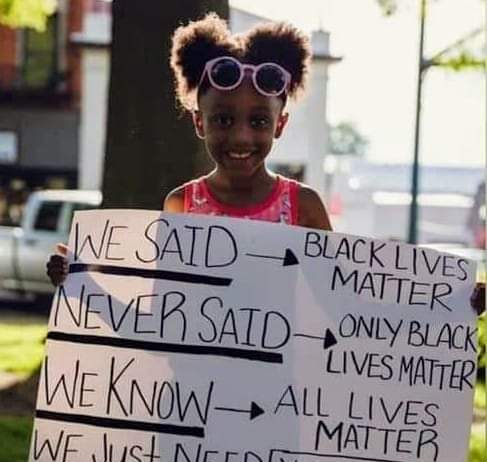 WE SAID → BLACK LIVES
MATTER
NEVER SAID → ONLY BLACK
LIVES MATTER
WE KNOW → ALL LIVES
MATTER
WE JUST NEED